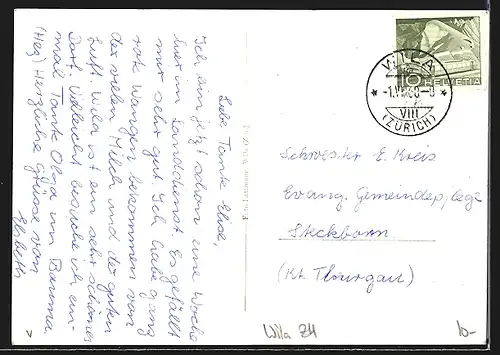 Liebe Tante Elise,
Ich bin jetzt schon eine Woche
hier im Landdienst. Es gefällt
mir sehr gut. Ich habe ganz
rote Wangen bekommen von
der vielen Milch und der guten
Luft. Wila ist ein sehr schönes
Dorf. Vielleicht besuche ich ein-
mal Tante Olga in Bauma
(Heg) Herzliche Grüsse von
Elsbeth
WILA
VIII
(ZÜRICH)
10 HELVETIA
Schwester E. Kreis
Evang. Gemeindepflege
Steckborn
(Kt. Thurgau)
Wila ZH
10-